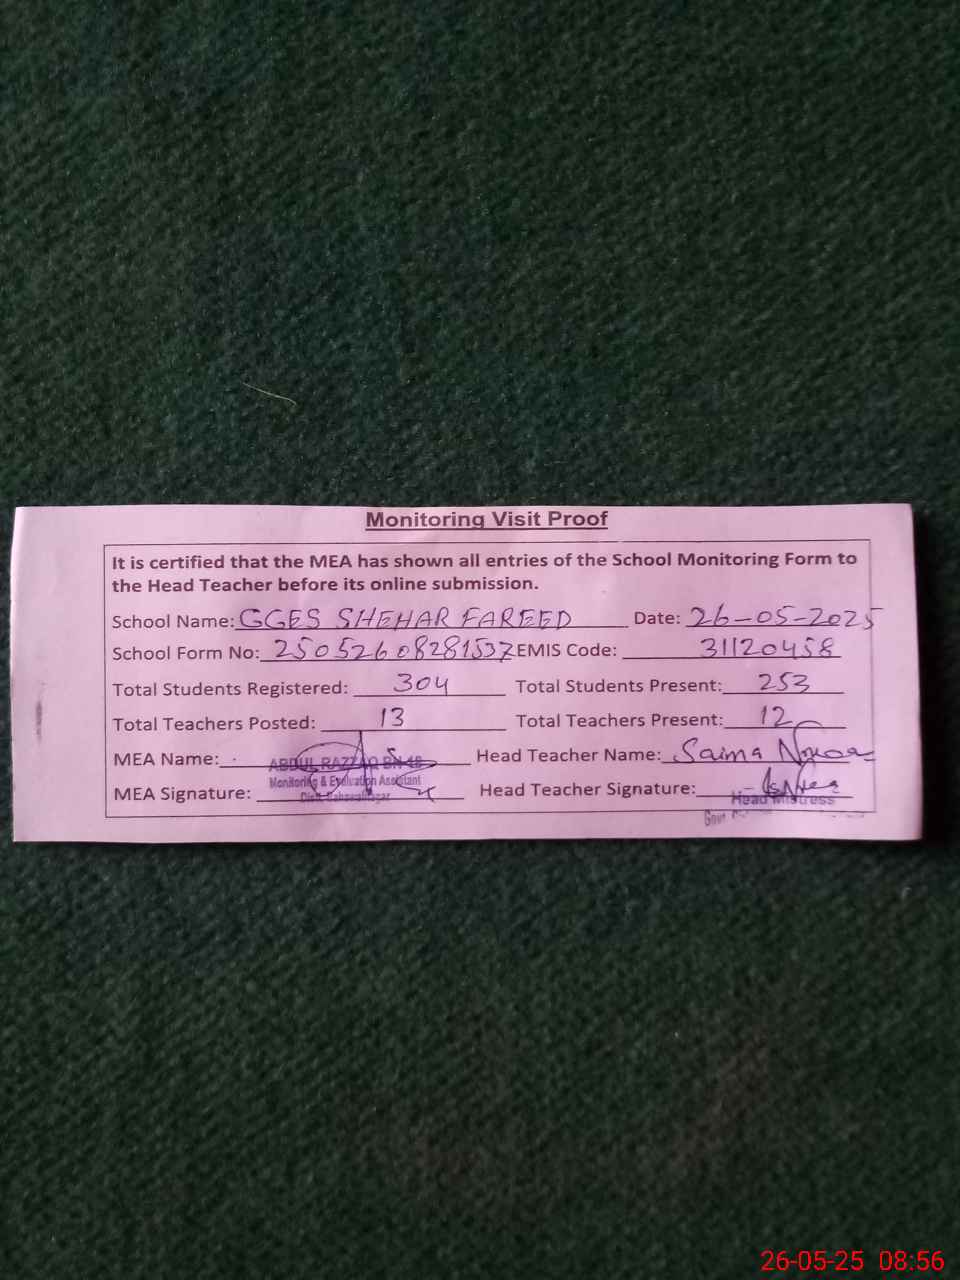 Monitoring Visit Proof
It is certified that the MEA has shown all entries of the School Monitoring Form to
the Head Teacher before its online submission.
School Name: GGES SHEHAR FAREED Date: 26-05-2025
School Form No: 25052608281537 EMIS Code: 31120458
Total Students Registered: 304 Total Students Present: 253
Total Teachers Posted: 13 Total Teachers Present: 12
MEA Name: ABDUL RAZZAQ Head Teacher Name: Saima
Monitoring & Evaluation Assistant
MEA Signature: Head Teacher Signature:
Distt. Bahawalnagar Head Mistress
Govt
26-05-25 08:56